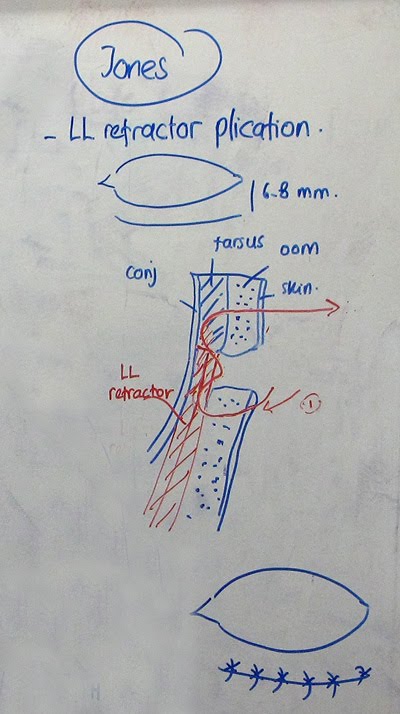 Jones
- LL refractor plication.
6-8 mm.
tarsus
oom
conj
skin.
LL
refractor
1